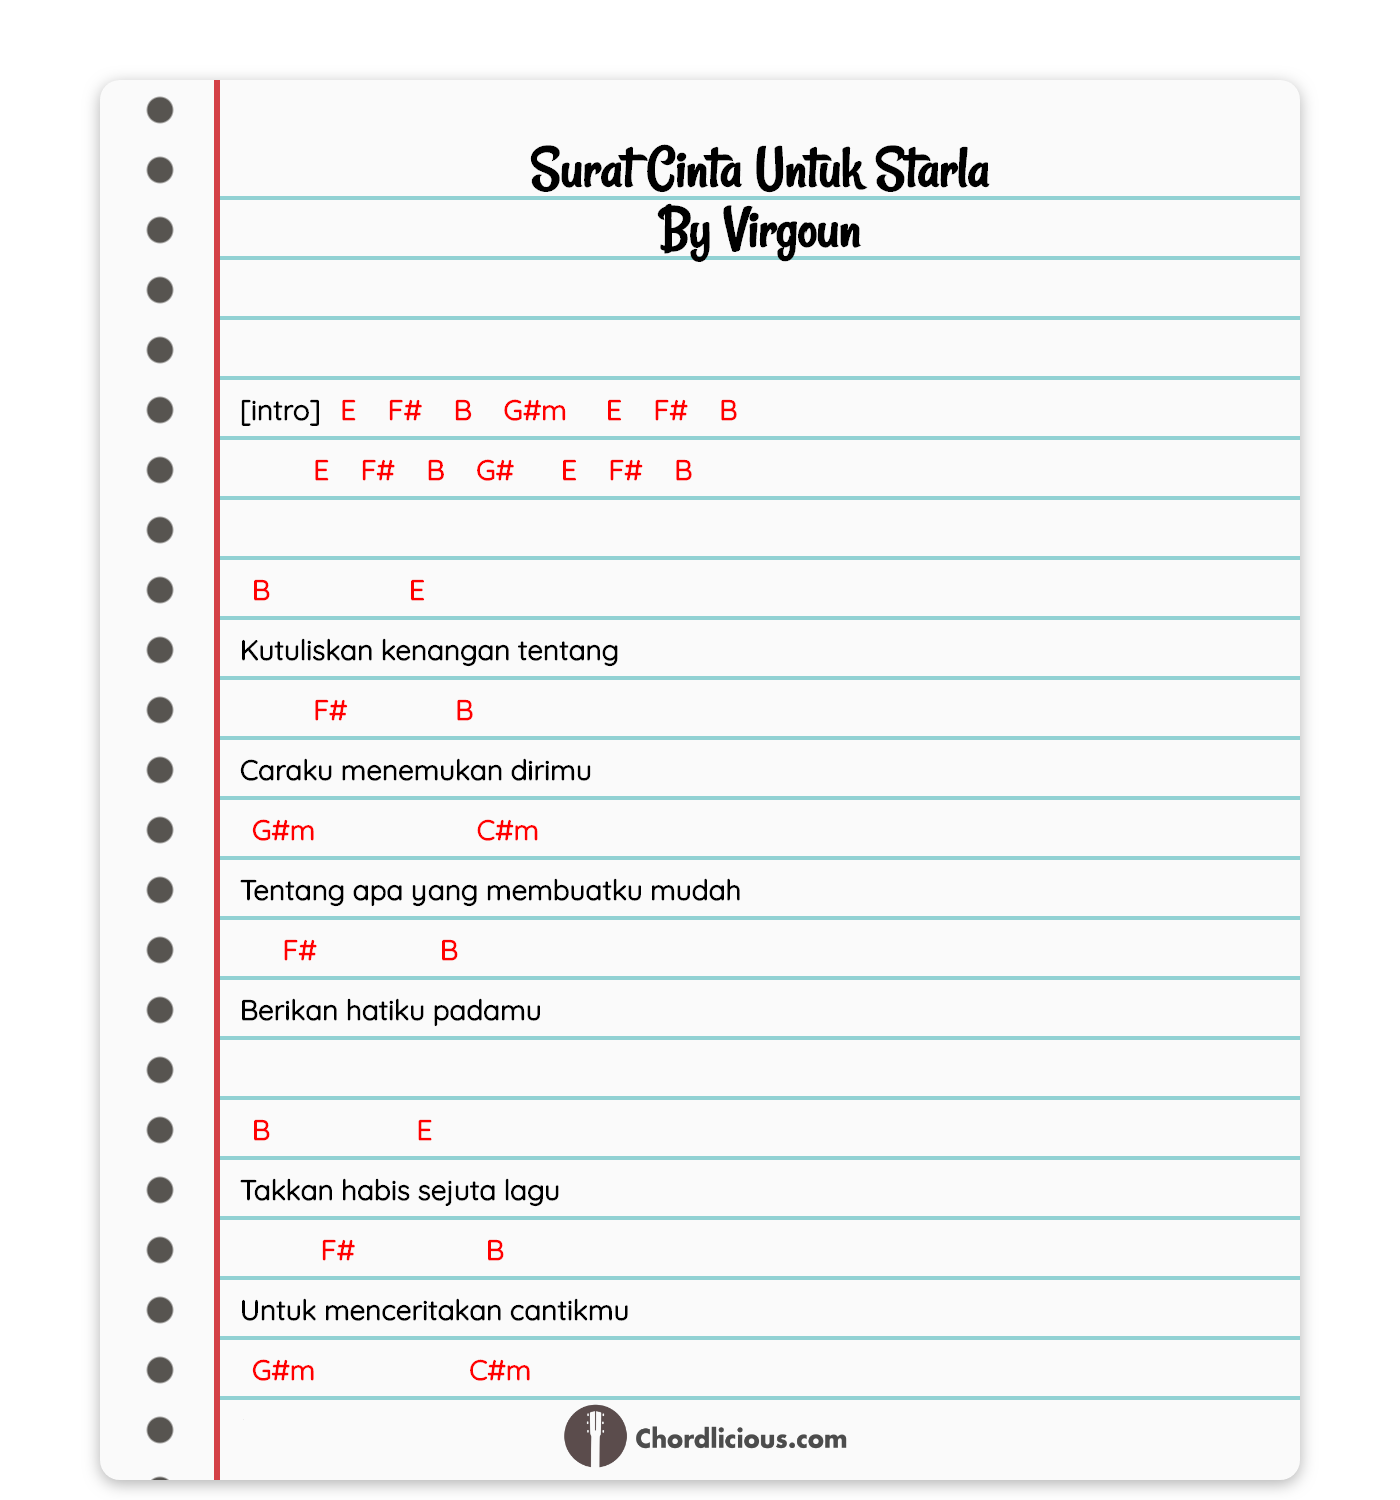 Surat Cinta Untuk Starla
By Virgoun
[intro] E F# B G#m E F# B
E F# B G# E F# B
B E
Kutuliskan kenangan tentang
F# B
Caraku menemukan dirimu
G#m C#m
Tentang apa yang membuatku mudah
F# B
Berikan hatiku padamu
B E
Takkan habis sejuta lagu
F# B
Untuk menceritakan cantikmu
G#m C#m
Chordlicious.com